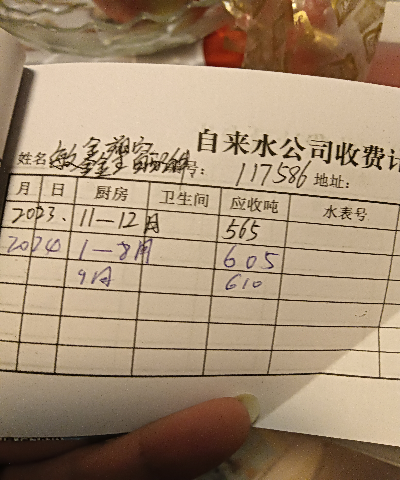 自来水公司收费计
姓名 鑫塑窗 编号: 117586 地址:
月 日 厨房 卫生间 应收吨 水表号
2023. 11—12月 565
2024 1—8月 605
9月 610